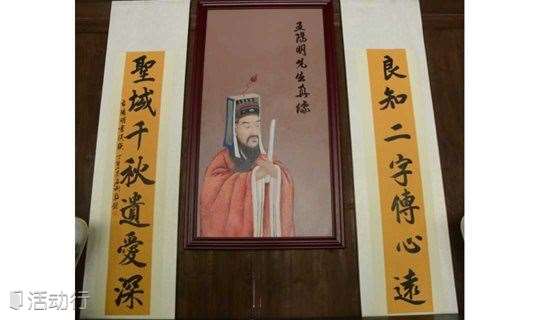 良知二字傳心遠
王陽明先生真像
聖域千秋遺愛深
活动行